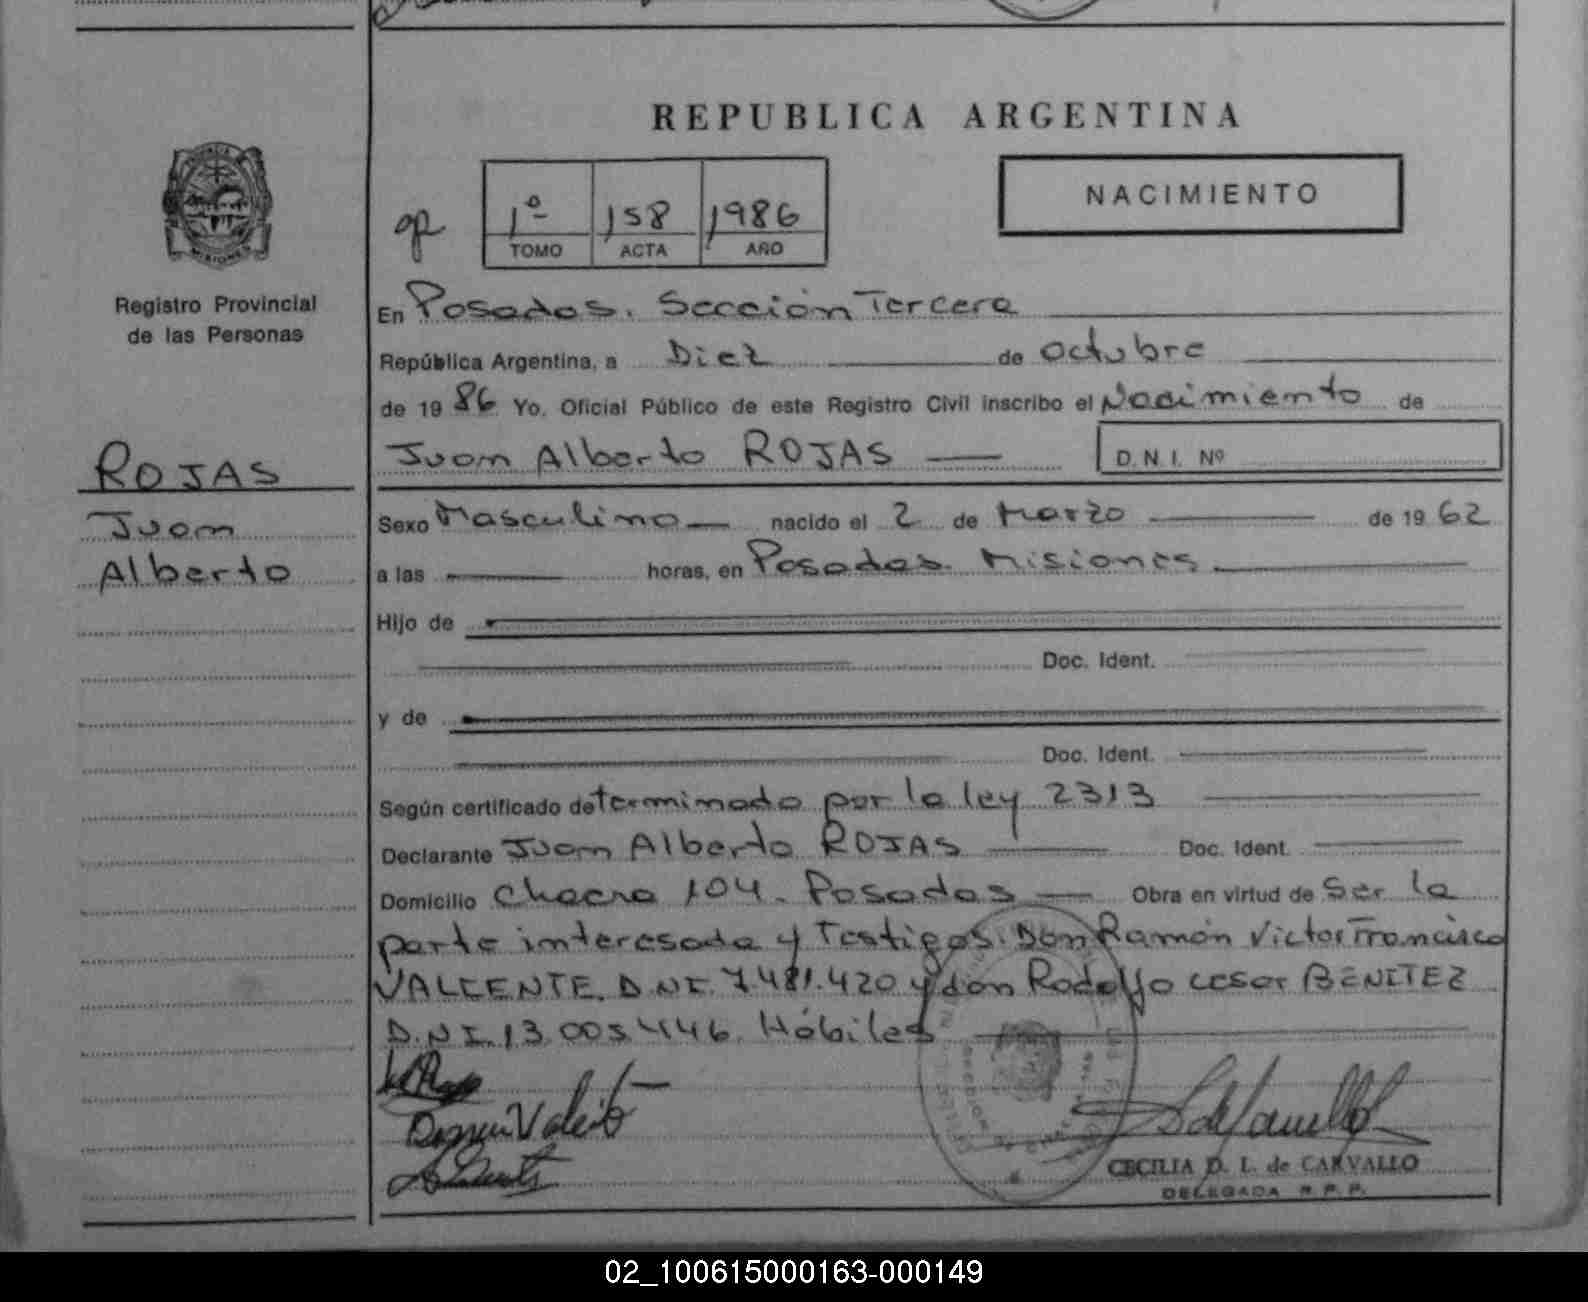 REPUBLICA ARGENTINA
PROVINCIA
MISIONES
Registro Provincial
de las Personas
1º 158 1986
TOMO ACTA AÑO
NACIMIENTO
En Posadas. Sección Tercera
República Argentina, a Diez de octubre
de 1986 Yo, Oficial Público de este Registro Civil inscribo el Nacimiento de
Juan Alberto ROJAS
D.N.I. Nº
ROJAS
Juan
Alberto
Sexo Masculino nacido el 2 de Marzo de 1962
a las horas, en Posadas. Misiones
Hijo de
Doc. Ident.
y de
Doc. Ident.
Según certificado determinado por la ley 2313
Declarante Juan Alberto ROJAS Doc. Ident.
Domicilio Chacra 104. Posadas Obra en virtud de Ser la
parte interesada y Testigos. Don Ramón Victor Francisco
VALIENTE. D.N.I. 7.481.420 y don Rodolfo cesar BENITEZ
D.N.I. 13.005.446. Hábiles
CECILIA D. L. de CARVALLO
DELEGADA R.P.P.
02_100615000163-000149